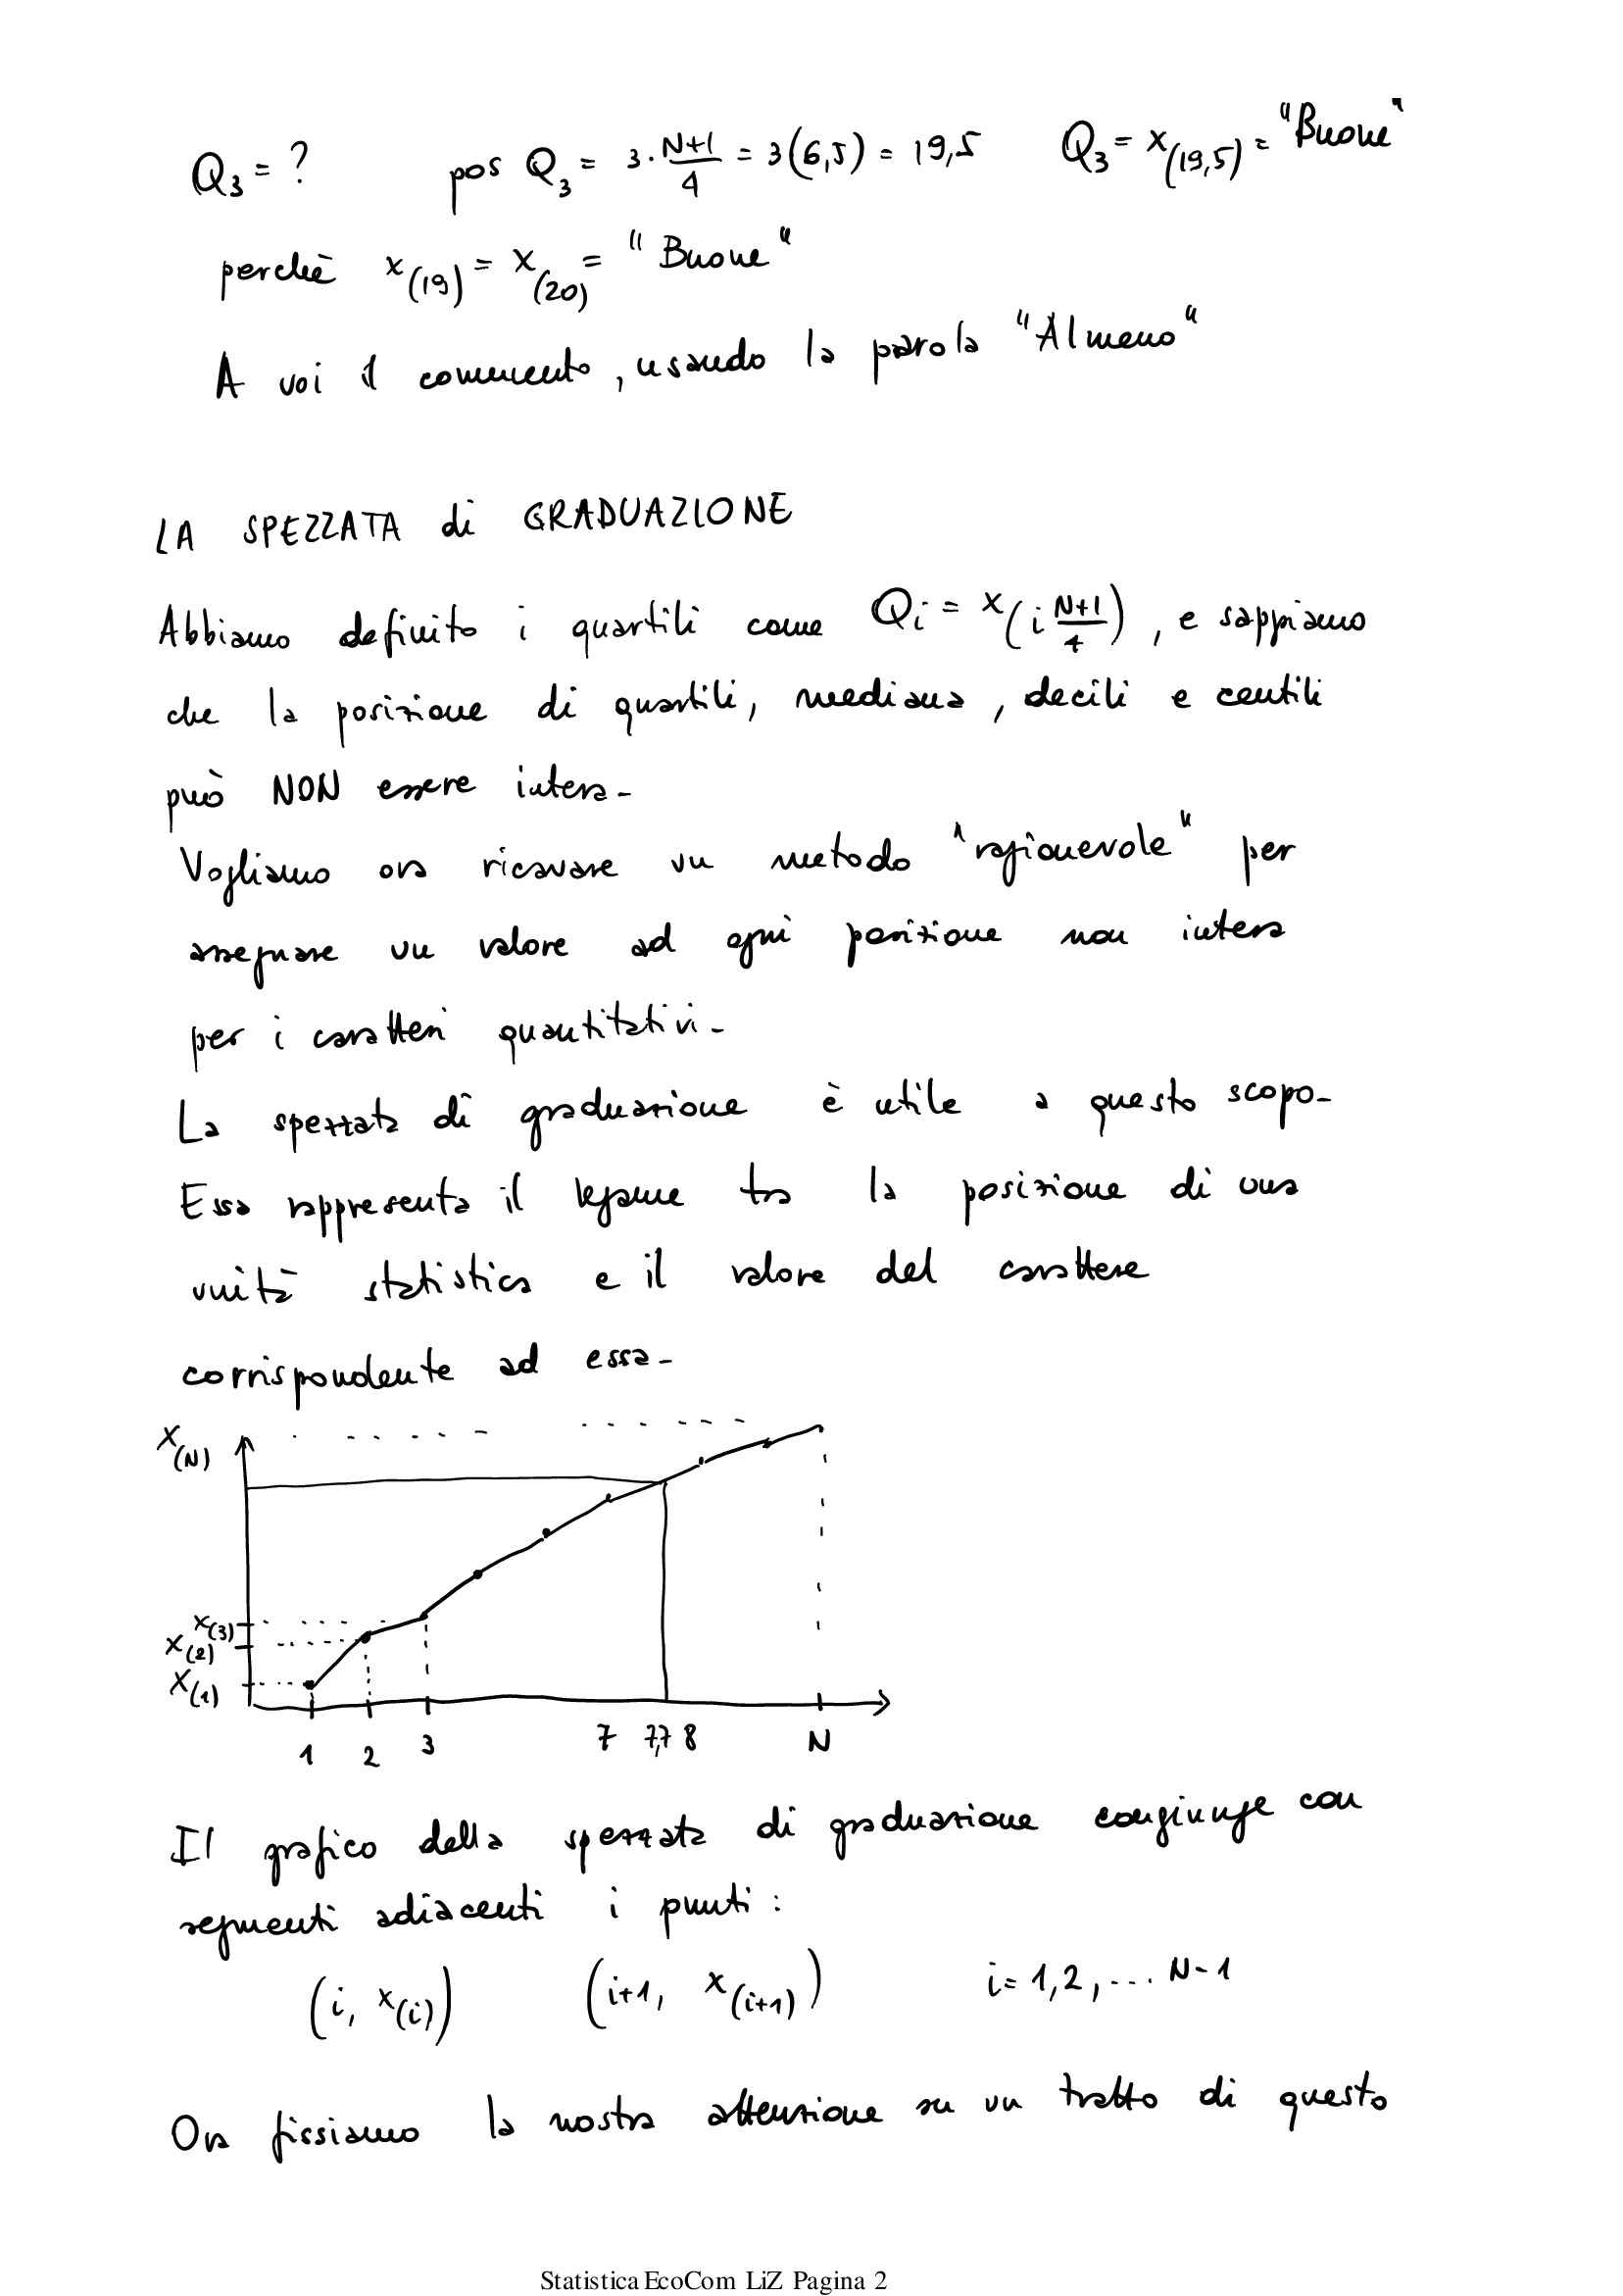 Q₃ = ? pos Q₃ = 3 · (N+1)/4 = 3(6,5) = 19,5 Q₃ = x₍₁₉,₅₎ = "Buone"
perchè x₍₁₉₎ = x₍₂₀₎ = "Buone"
A voi il commento, usando la parola "Almeno"
LA SPEZZATA di GRADUAZIONE
Abbiamo definito i quartili come Qi = x(i (N+1)/4), e sappiamo
che la posizione di quartili, mediana, decili e centili
può NON essere intera-
Vogliamo ora ricavare un metodo "ragionevole" per
assegnare un valore ad ogni posizione non intera
per i caratteri quantitativi-
La spezzata di graduazione è utile a questo scopo-
Essa rappresenta il legame tra la posizione di una
unità statistica e il valore del carattere
corrispondente ad essa-
x(N)
x(3)
x(2)
x(1)
1 2 3 7 7,7 8 N
Il grafico della spezzata di graduazione congiunge con
segmenti adiacenti i punti:
(i, x(i)) (i+1, x(i+1)) i= 1,2, .... N-1
Ora fissiamo la nostra attenzione su un tratto di questo
Statistica EcoCom LiZ Pagina 2